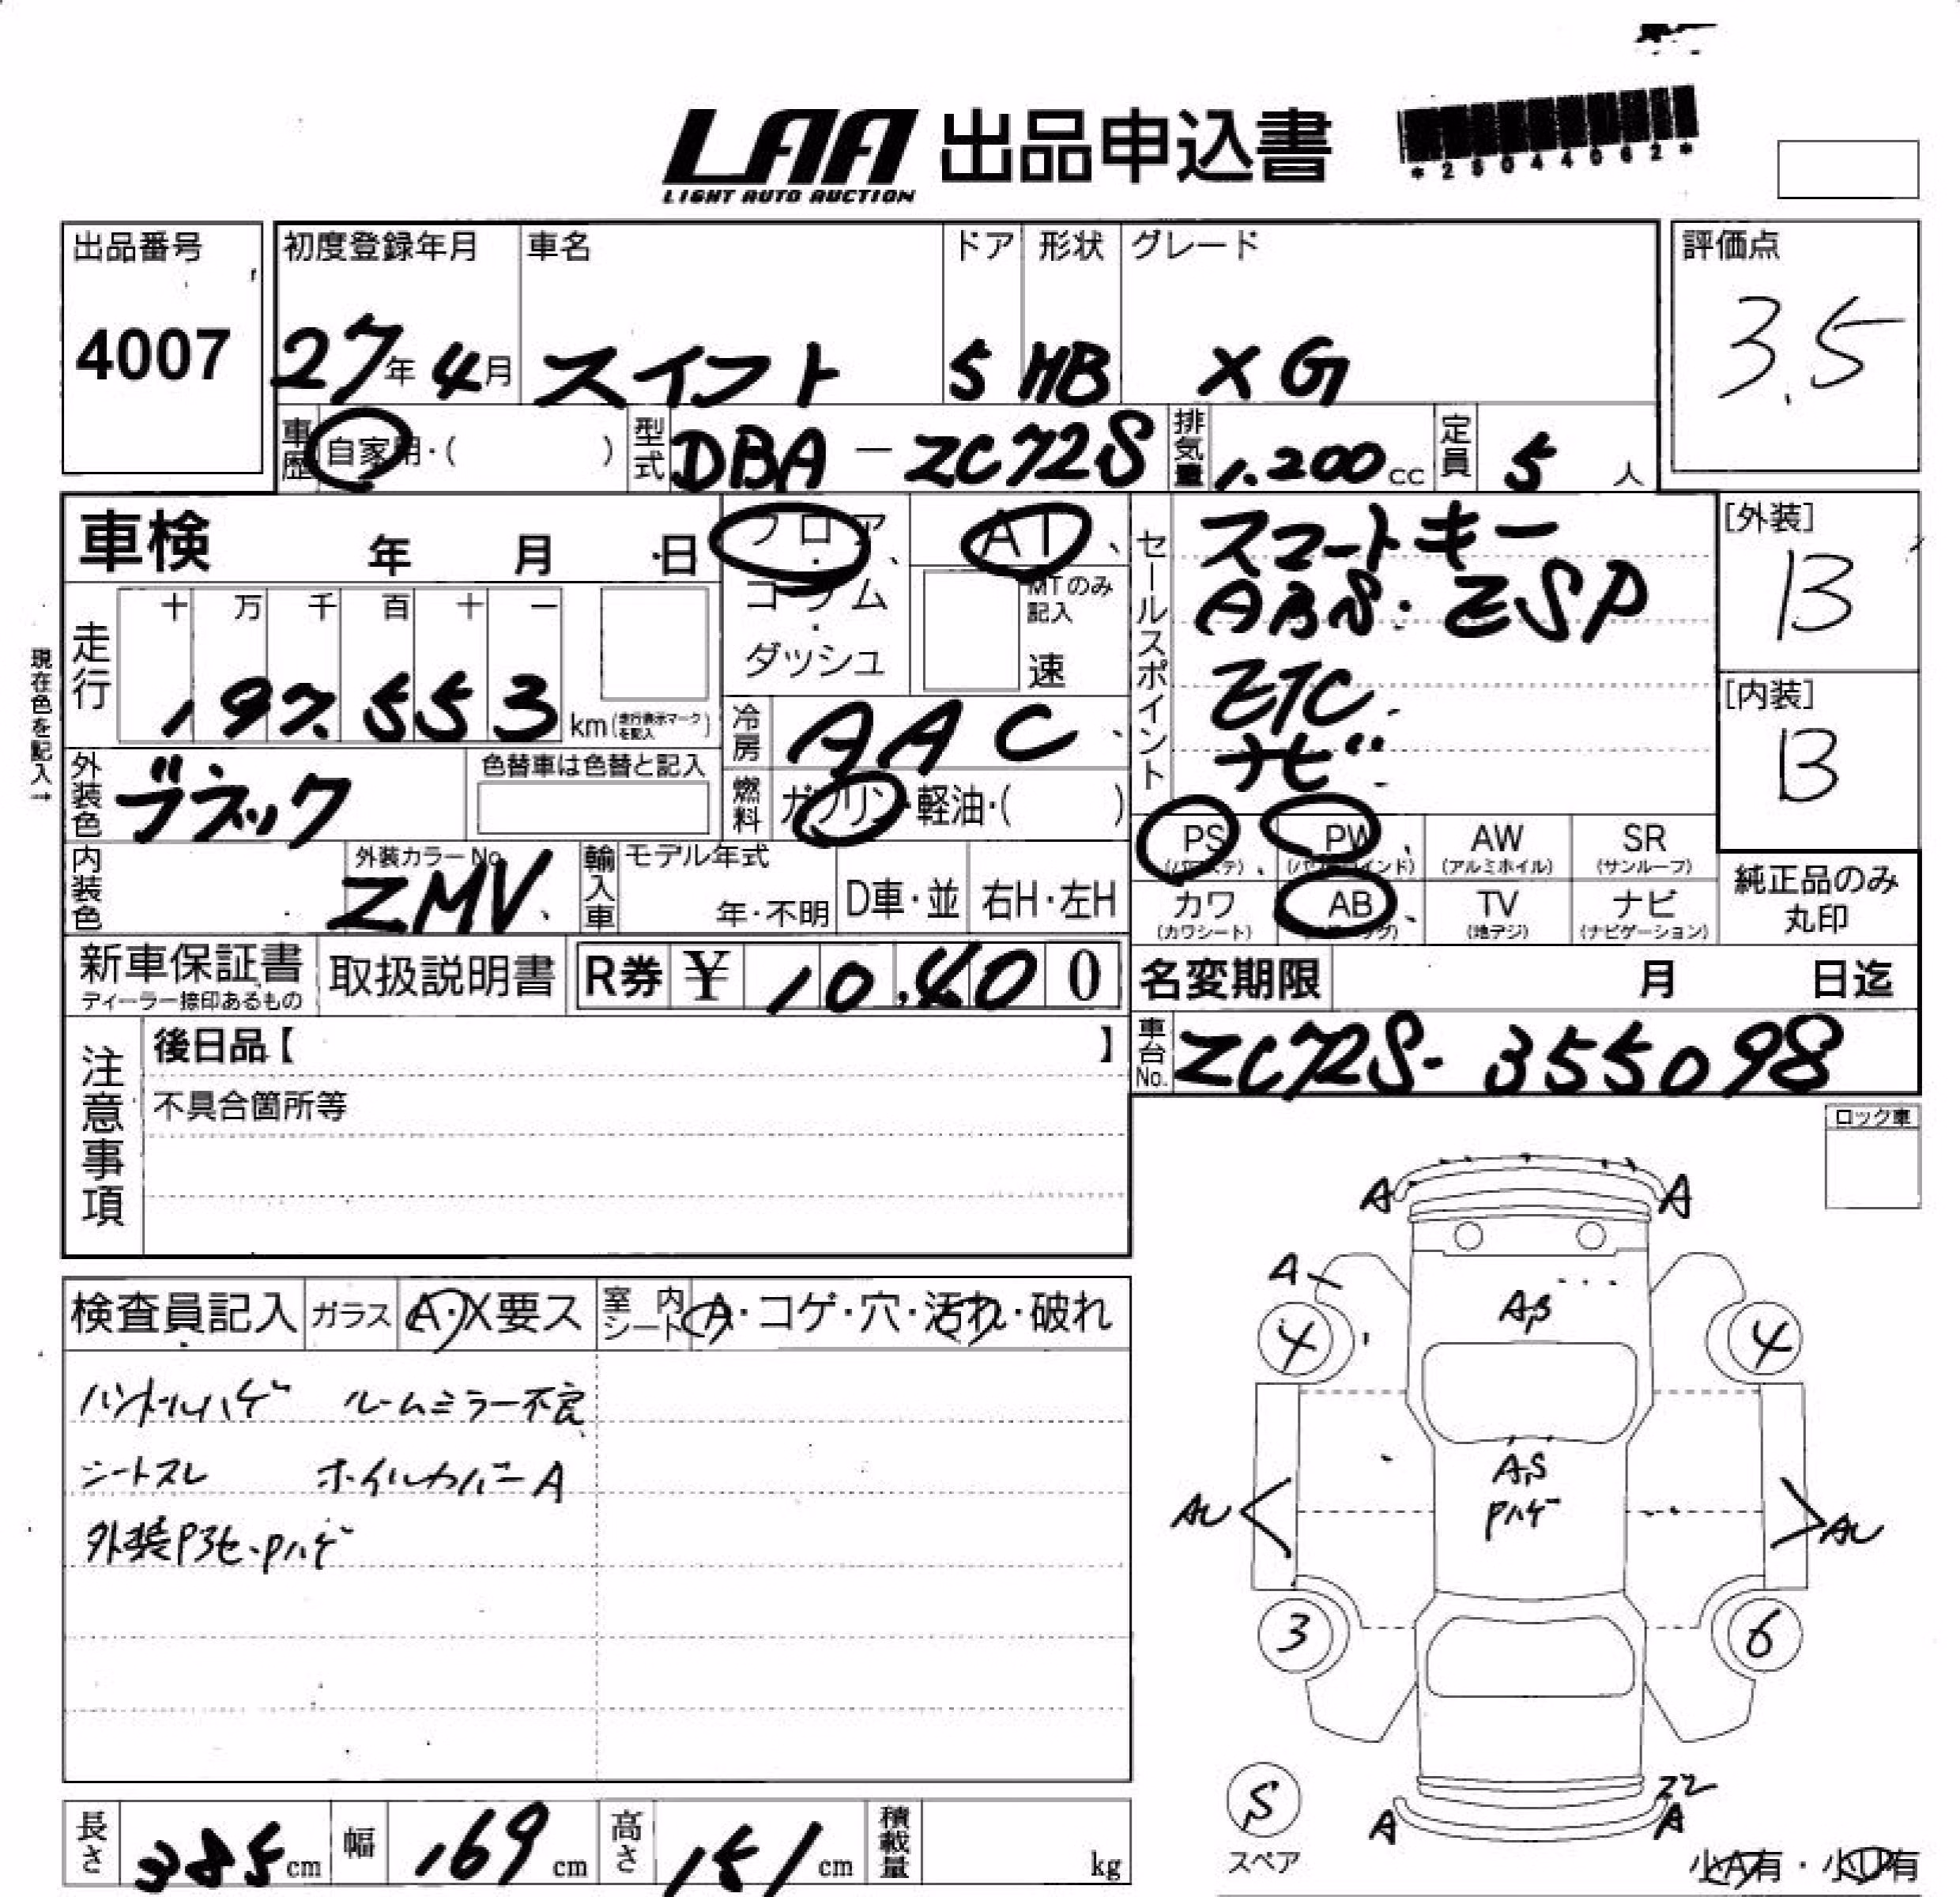 LAA 出品申込書
LIGHT AUTO AUCTION
*25044062*
出品番号
4007
初度登録年月
27年 4月
車名
スイフト
ドア
5
形状
HB
グレード
XG
評価点
3.5
車歴 自家用・( )
型式 DBA-ZC72S
排気量 1.200cc
定員 5人
車検 年 月 日
フロア
・
コラム
・
ダッシュ
AT
MTのみ記入
速
セールスポイント
スマートキー
ABS・ESP
ETC
ナビ
[外装]
B
[内装]
B
現在色を記入→
走行
十 万 千 百 十 一
197,553 km(走行表示マークを記入)
冷房 AAC
燃料 ガソリン・軽油・( )
外装色 ブラック
色替車は色替と記入
内装色
外装カラーNo.
ZMV
輸入車
モデル年式
年・不明
D車・並
右H・左H
PS
(パワステ)
PW
(パワーウインド)
AW
(アルミホイル)
SR
(サンルーフ)
カワ
(カワシート)
AB
(エアーバッグ)
TV
(地デジ)
ナビ
(ナビゲーション)
純正品のみ
丸印
新車保証書
ディーラー捺印あるもの
取扱説明書
R券 ¥ 10,400
名変期限 月 日迄
車台No. ZC72S-355098
注意事項
後日品【 】
不具合箇所等
ロック車
検査員記入
ガラス A・X要ス
室内シート A・コゲ・穴・汚れ・破れ
ハンドルハゲ ルームミラー不良
シートスレ ホイルカバーA
外装Pヨセ・Pハゲ
A A
A
A,B
4 4
A,S
Pハゲ
AU AU
3 6
S
スペア
A A
小A有・小U有
長さ 385cm
幅 169cm
高さ 151cm
積載量 kg